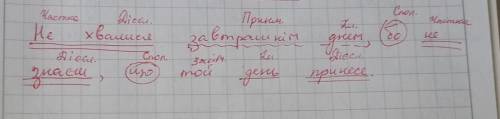 Частка Дієсл. Прикм. Ім. Спол. Частка
Не хвалися завтрашнім днем, бо не
Дієсл. Спол. Займ. Ім. Дієсл.
знаєш, що той день принесе.